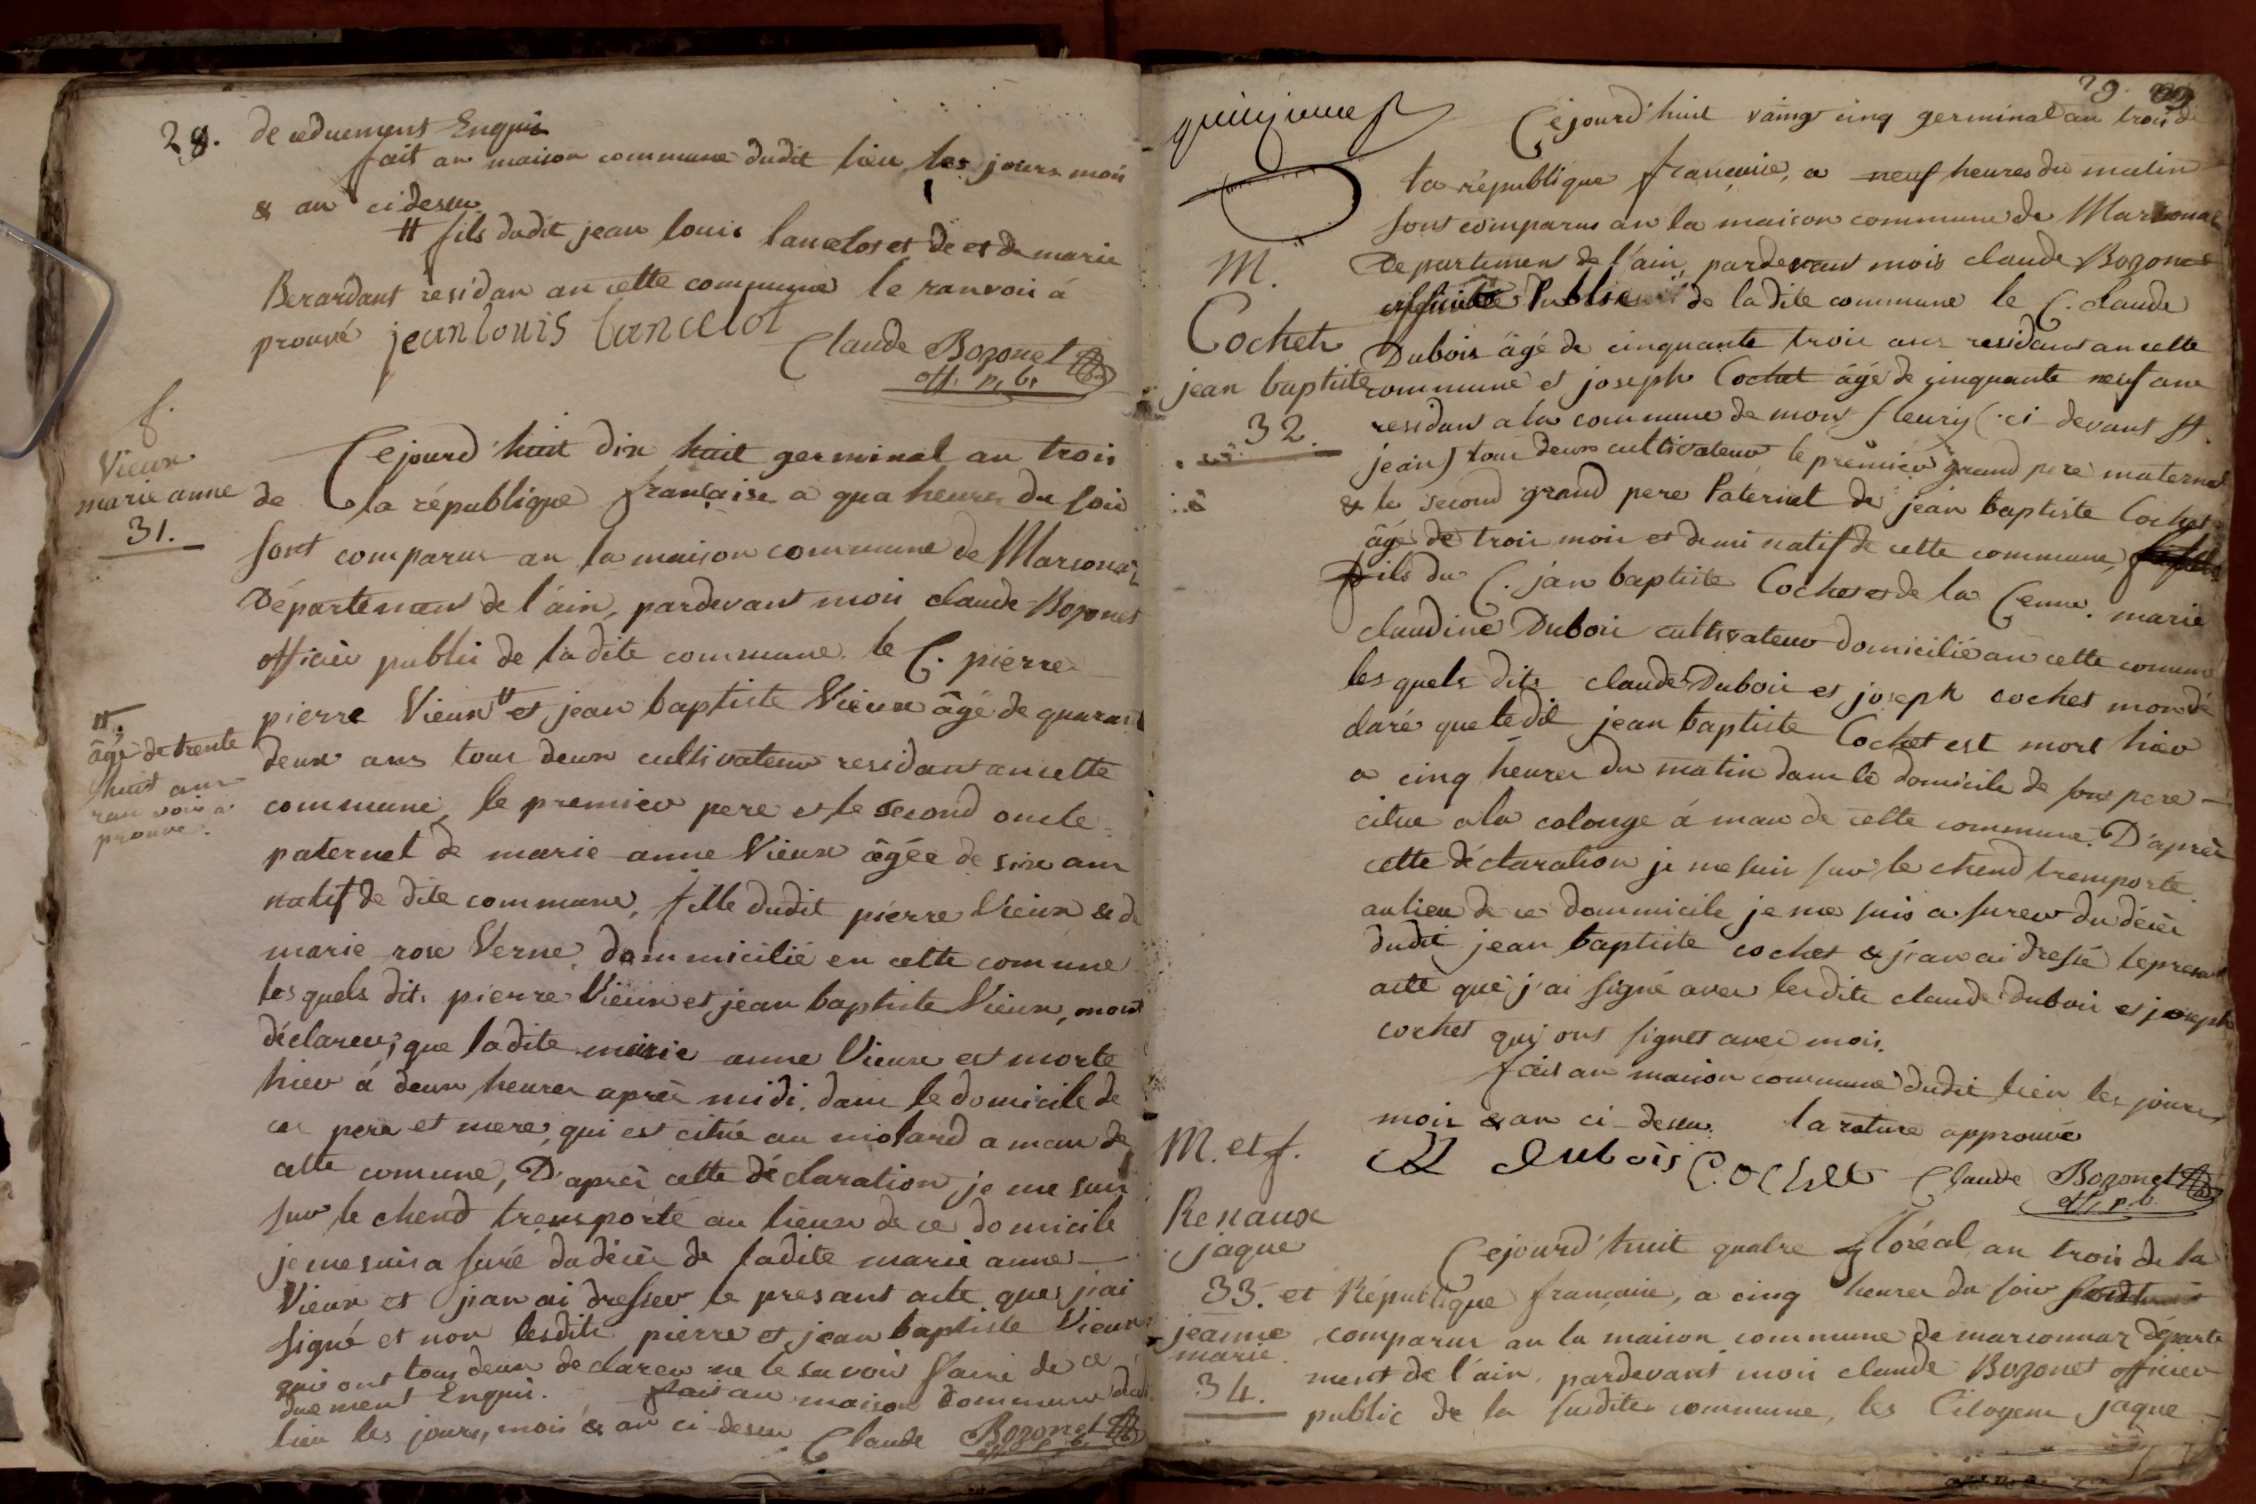 28.
de ce duement Enquis
fait an maison commune dudit lieu les jours mois
& an ci dessu
# fils dudit jean louis lancelot et de et de marie
Berardant residan an cette commune le ranvoii à
prouvé jean louis lancelot
Claude Bozonet
off. p. b.
f.
Vieux
marie anne
31.
Cejourd'huit dix huit germinal an trois
de la république française a qua heures du soir
sont comparus an la maison commune de Marsonaz
Département de l'ain, pardevant moii claude Bozonet
officier public de ladite commune le C. pierre
pierre Vieux # et jean baptiste Vieux âgé de quarant
#.
âgé de trente
huit ans
ran voii à
prouvé.
deux ans tous deux cultivateur residant an cette
commune, le premier pere et le second oncle
paternel de marie anne Vieux âgée de six ans
natif de dite commune, fille dudit pierre Vieux & de
marie rose Verne dommicilié en cette comune
les quels dits pierre Vieux et jean baptiste Vieux, mont
déclarer, que ladite marie anne Vieux est morte
hier à deux heures après midi, dans le domicile de
ces pere et mere, qui est citué au molard a mau de
cette comune, D'après cette déclaration je me suis
sur le chend transporté au lieux de ce domicile
je me suis a suré du décès de ladite marie anne
Vieux et j'an ai dresser le presant acte que j'ai
signé et non lesdits pierre et jean baptiste Vieux
qui ont tous deux declarer ne le savoir faire de ce
duement Enquis. fait an maison commune dud.
lieu les jours, mois & an ci dessu Claude Bozonet
off. p. b.
29.
M.
Cochet
jean baptiste
32.
Cejourd'huit vaingt cinq germinal an trois de
la république française, a neuf heures du matin
sont comparus an la maison commune de Marsonaz
Departemen de l'ain, pardevant mois claude Bozonet
officier Public de ladite commune le C. claude
Dubois âgé de cinquante trois ans residant an cette
commune et joseph Cochet âgé de cinquante neuf ans
residan a la commune de mont fleury (ci devant st.
jean) tous deux cultivateur le premier grand pere maternel
& le second grand pere Paternel de jean baptiste Cochet
âgé de trois mois et demi natif de cette commune,
fils du C. jan baptiste Cochet et de la Cenne. marie
claudine Dubois cultivateur domicilié an cette comune
les quels dits claude Dubois et joseph cochet mon dé
claré que ledit jean baptiste Cochet est mort hier
a cinq heures du matin dans le domicile de son pere
citue a la colonge á mau de cette commune. D'après
cette déclaration je me suis sur le chend tremporté
au lieu de ce dommicile je me suis a surer du décès
dudit jean baptiste cochet & j'an ai dressé le presant
acte que j'ai signé avec lesdits claude Dubois et joseph
cochet qui ont signet avec mois.
fait an maison commune dudit lieu les jours,
mois & an ci dessu. la rature approuvé
Dubois Cochet Claude Bozonet
off. p. b.
M. et f.
Renaux
jaque
33. et
jeanne
marie
34.
Cejourd'huit quatre floréal an trois de la
République française, a cinq heures du soir
comparus an la maison commune de marsonnaz départe
ment de l'ain, pardevant moii claude Bozonet officier
public de la susdite commune, les Citoyens jaque